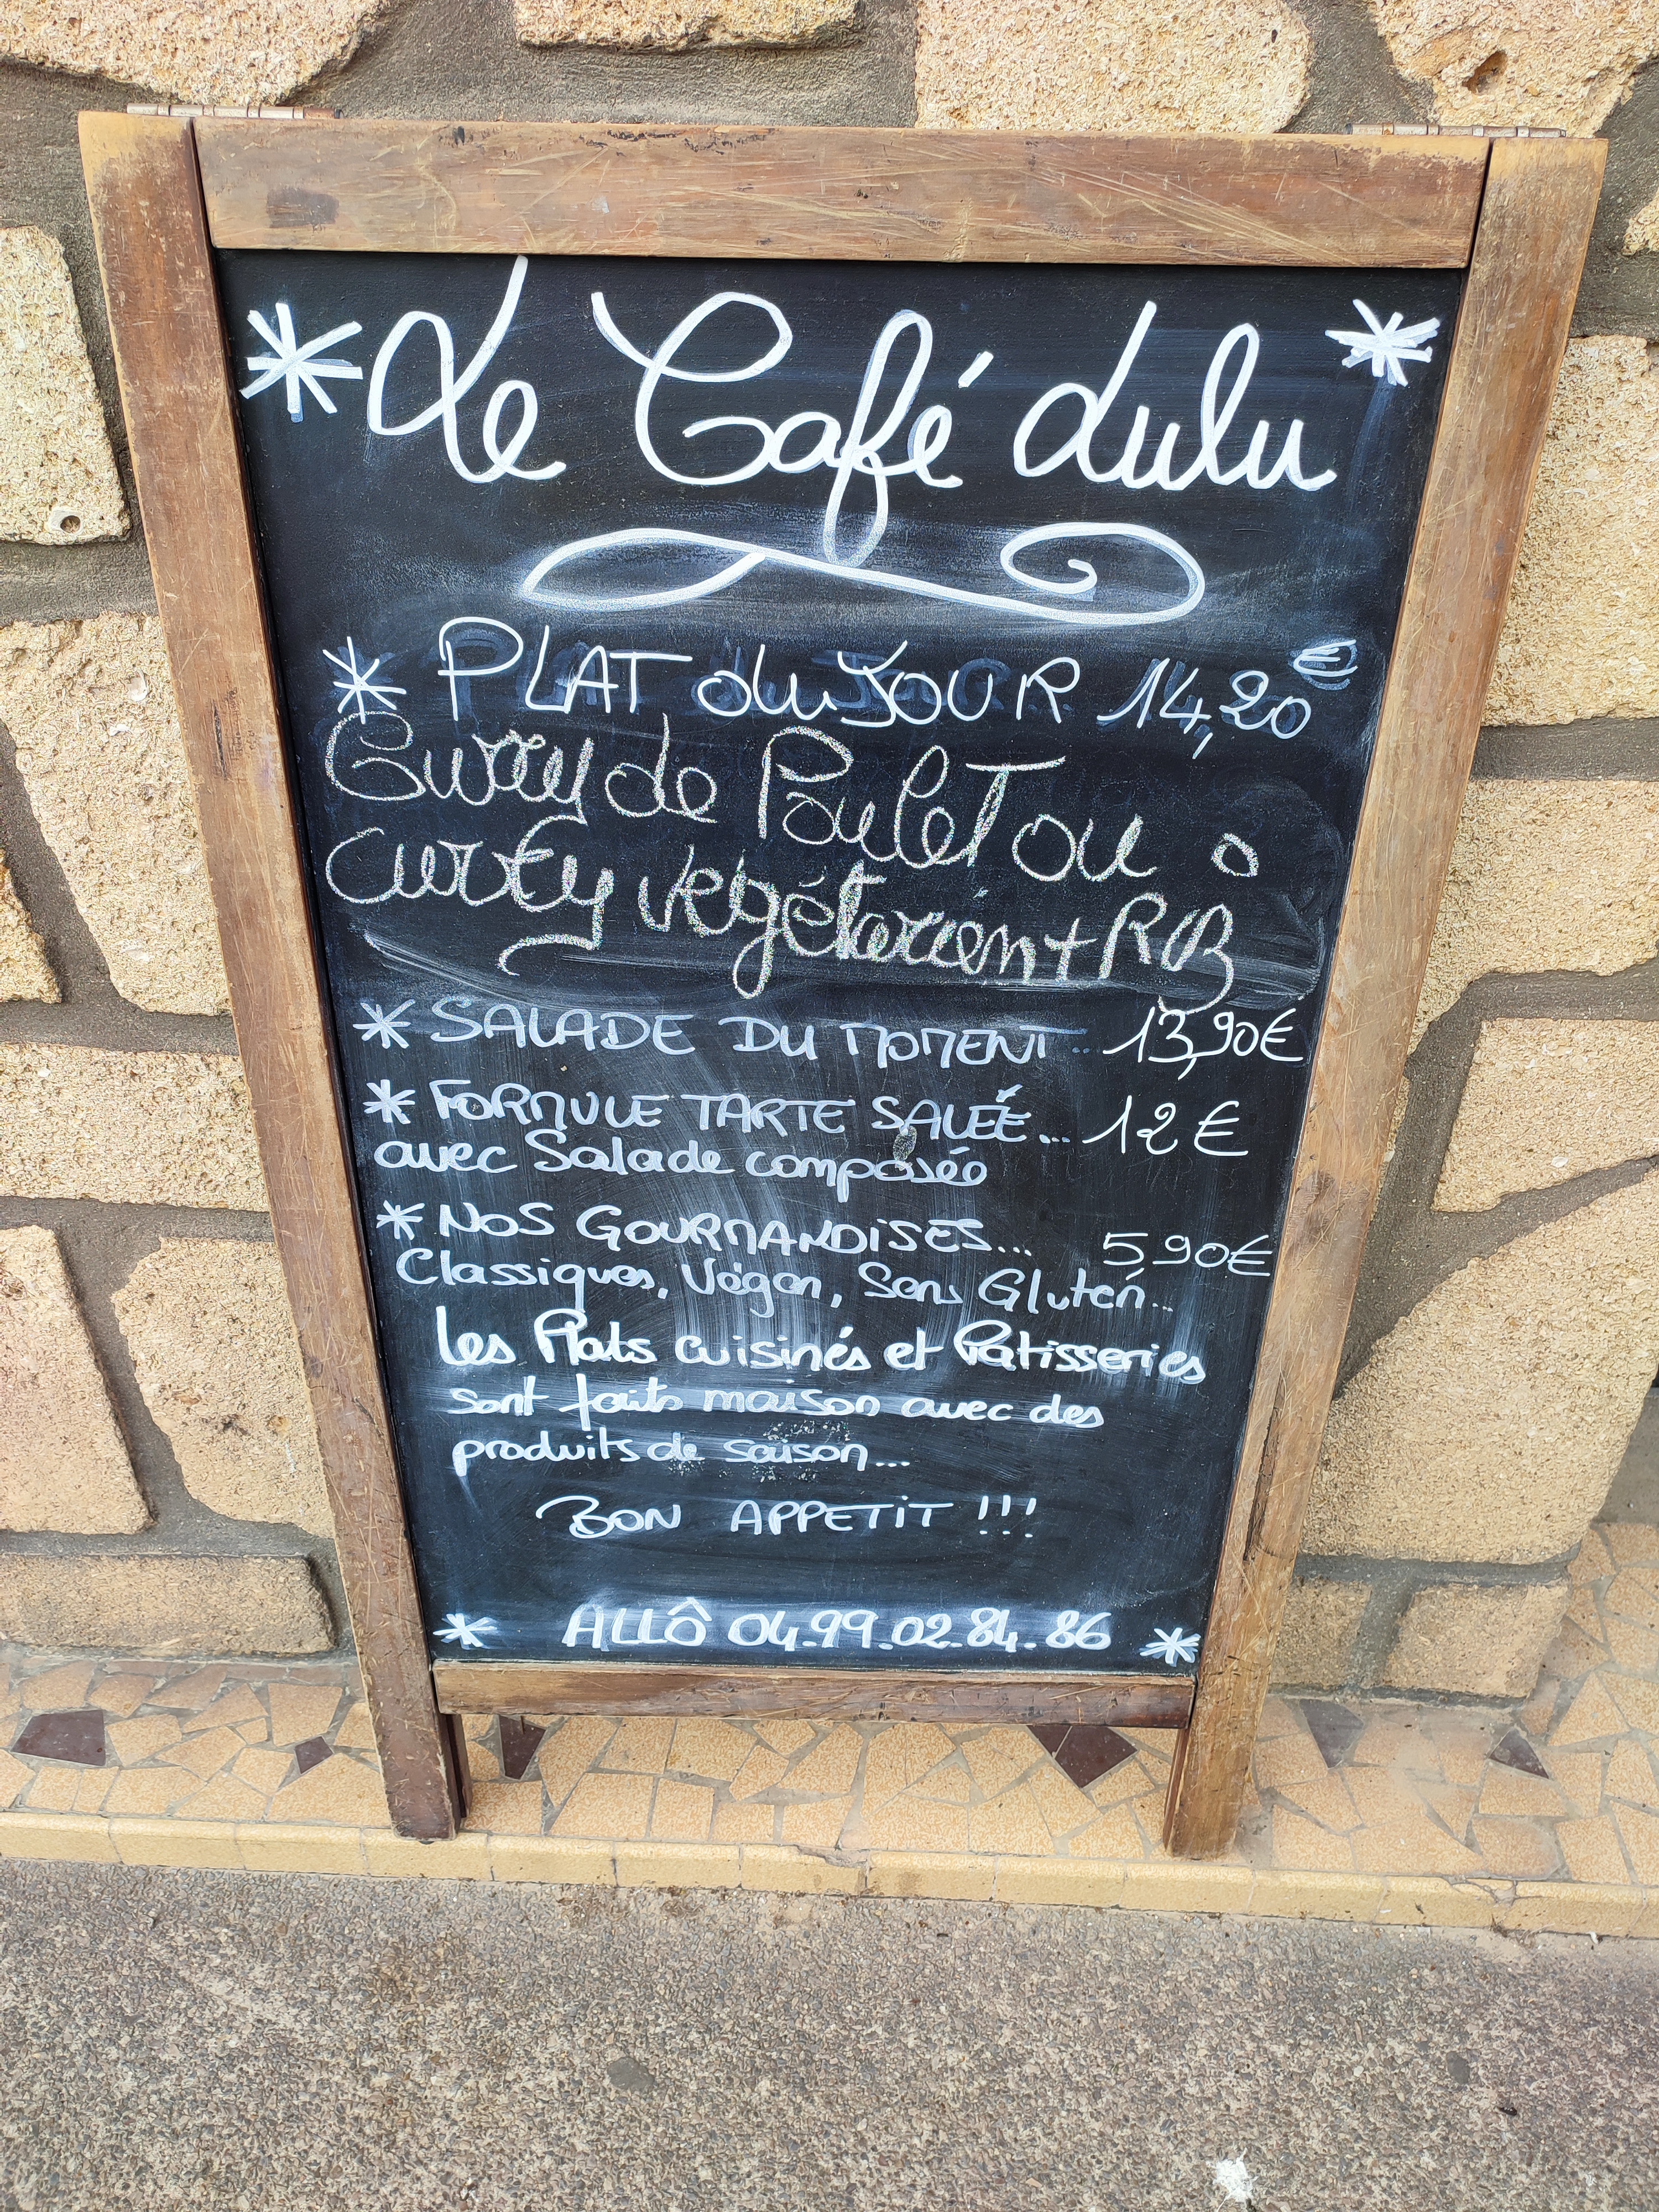 * Le Café Lulu *
* PLAT du JOUR 14,20€
Curry de Poulet ou
curry végétarien + RIZ
* SALADE DU MOMENT.. 13,90€
* FORMULE TARTE SALÉE... 12€
avec Salade composée
* NOS GOURMANDISES... 5,90€
Classiques, Végan, Sans Gluten...
Les Plats cuisinés et Patisseries
sont faits maison avec des
produits de saison...
BON APPETIT !!!
* ALLÔ 04.99.02.84.86 *